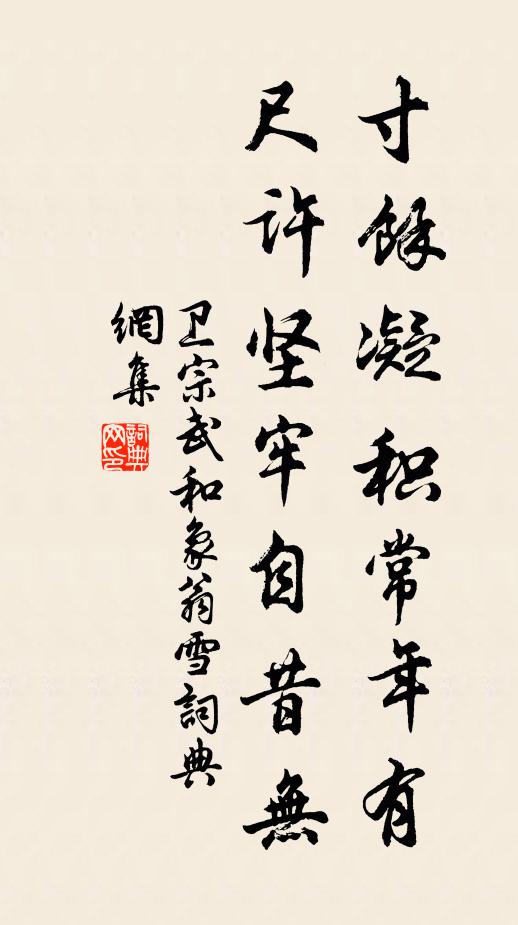 寸餘凝积常年有
尺许坚牢自昔無
卫宗武和象翁雪詞典
網集
詞典
网印